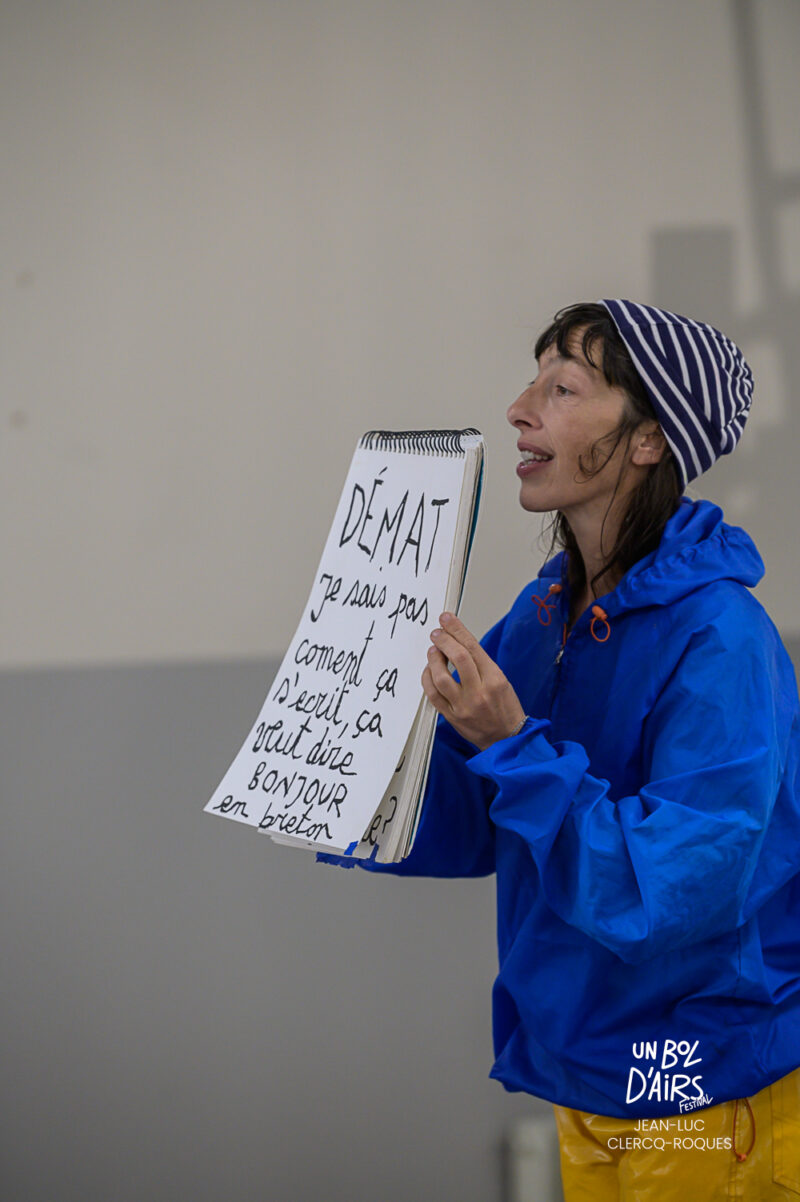 DÉMAT
je sais pas
coment ça
s'écrit, ça
veut dire
BONJOUR
en breton
e?
UN BOL
D'AIRS
FESTIVAL
JEAN-LUC
CLERCQ-ROQUES